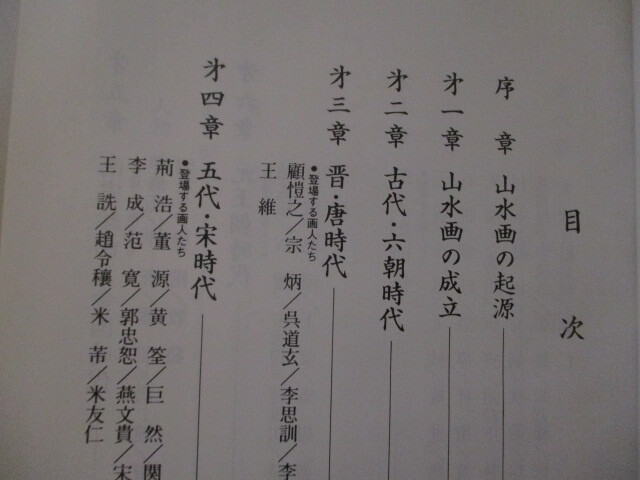 目次
序章 山水画の起源
才一章 山水画の成立
才二章 古代・六朝時代
才三章 晋・唐時代
●登場する画人たち
顧愷之／宗炳／呉道玄／李思訓／李
王維
才四章 五代・宋時代
●登場する画人たち
荊浩／董源／黄筌／巨然／関
李成／范寛／郭忠恕／燕文貴／宋
王詵／趙令穰／米芾／米友仁